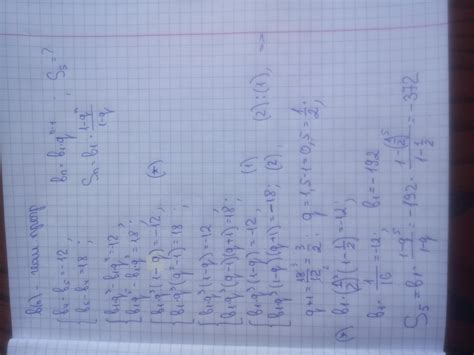 b(n) - геом прогр
bₙ = b₁·qⁿ⁻¹ ; S₅ = ?
{ b₄ - b₅ = -12 ;
b₆ - b₄ = 18 ;
Sₙ = b₁ · (1-qⁿ)/(1-q)
{ b₁q³ - b₁q⁴ = -12 ;
b₁q⁵ - b₁q³ = 18 ;
{ b₁q³(1-q) = -12 ; (*)
b₁q³(q²-1) = 18 ;
{ b₁q³(1-q) = -12 ;
b₁q³(q-1)(q+1) = 18 ;
{ b₁q³(1-q) = -12 ; (1)
b₁q³(1-q)(q+1) = -18 ; (2) (2):(1), =>
q+1 = 18/12 = 3/2 ; q = 1,5-1 = 0,5 = 1/2 ;
(*) b₁·(1/2)³(1-1/2) = -12 ;
b₁· 1/16 = -12 ; b₁ = -192
S₅ = b₁· (1-q⁵)/(1-q) = -192· (1-(1/2)⁵)/(1-1/2) = -372